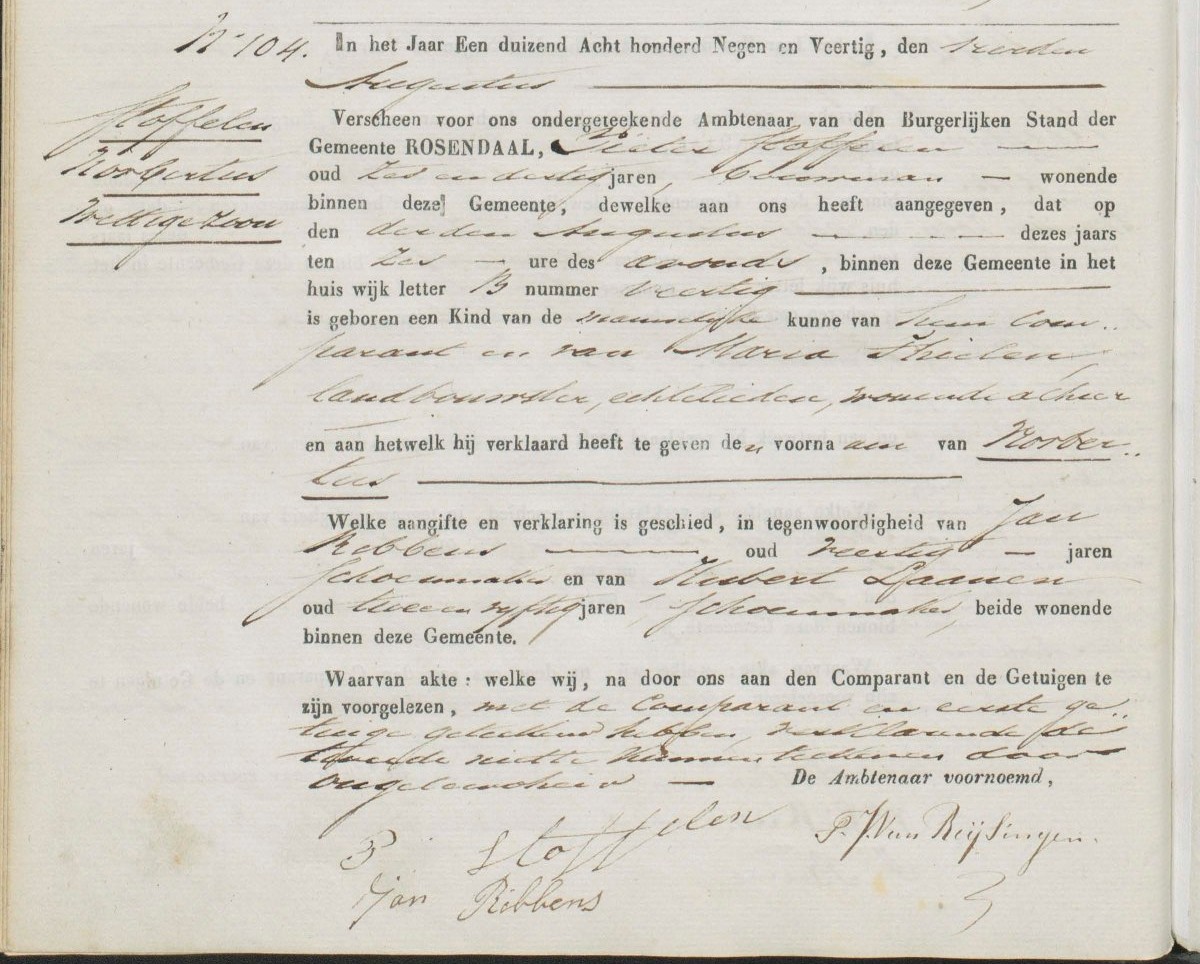 N° 104.
In het Jaar Een duizend Acht honderd Negen en Veertig, den vierden
Augustus
Stoffelen
Norbertus
Wettige Zoon
Verscheen voor ons ondergeteekende Ambtenaar van den Burgerlijken Stand der
Gemeente ROSENDAAL, Pieter Stoffelen
oud Zes en dertig jaren, Bouwman wonende
binnen deze Gemeente, dewelke aan ons heeft aangegeven, dat op
den derden Augustus dezes jaars
ten Zes ure des avonds, binnen deze Gemeente in het
huis wijk letter B nummer veertig
is geboren een Kind van de mannelijke kunne van hem Com..
parant en van Maria Thielen,
landbouwster, echtelieden, wonende alhier
en aan hetwelk hij verklaard heeft te geven den voornaam van Norber..
tus
Welke aangifte en verklaring is geschied, in tegenwoordigheid van Jan
Ribbens, oud veertig jaren
Schoenmaker en van Hubert Laanen
oud twee en vyftig jaren, Schoenmaker, beide wonende
binnen deze Gemeente.
Waarvan akte: welke wij, na door ons aan den Comparant en de Getuigen te
zijn voorgelezen, met de Comparant en eerste ge..
tuige geteekend hebben, verklarende de
tweede niette kunnen teekenen door
ongeleerdheid
De Ambtenaar voornoemd,
P Stoffelen
P. J. Van Reijsingen.
Jan Ribbens